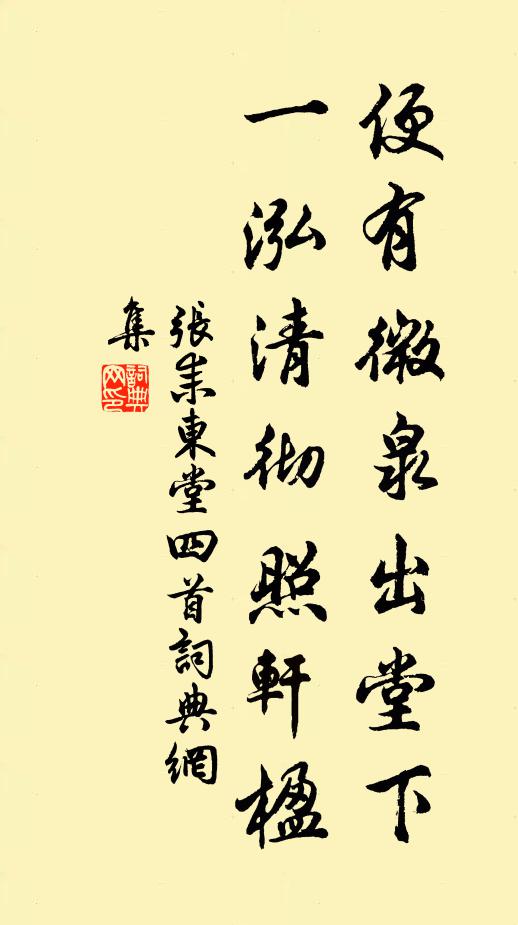 便有微泉出堂下
一泓清彻照軒楹
張耒東堂四首詞典網
集
詞典
网印